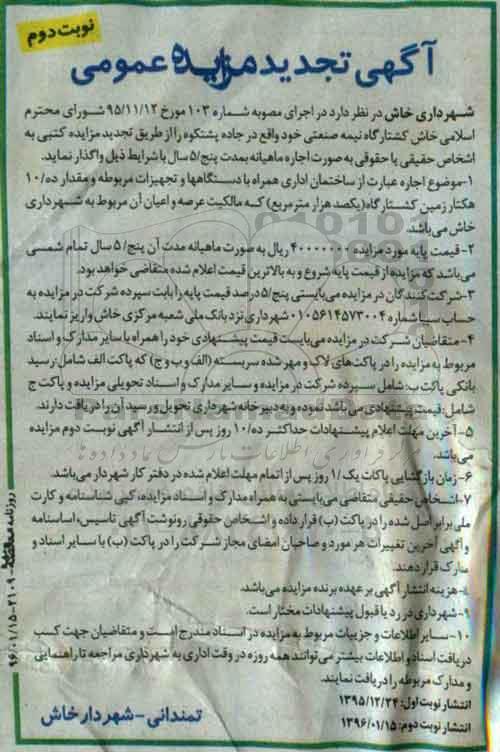 نوبت دوم
آگهی تجدید مزایده عمومی
شهرداری خاش در نظر دارد در اجرای مصوبه شماره ۱۰۳ مورخ ۹۵/۱۱/۱۲ شورای محترم
اسلامی خاش کشتارگاه نیمه صنعتی خود واقع در جاده پشتکوه را از طریق تجدید مزایده کتبی به
اشخاص حقیقی یا حقوقی به صورت اجاره ماهیانه بمدت پنج/۵ سال با شرایط ذیل واگذار نماید.
۱-موضوع اجاره عبارت از ساختمان اداری همراه با دستگاهها و تجهیزات مربوطه و مقدار ده/۱۰
هکتار زمین کشتارگاه (یکصد هزار متر مربع) که مالکیت عرصه و اعیان آن مربوط به شهرداری
خاش می‌باشد.
۲-قیمت پایه مورد مزایده ۴۰۰۰۰۰۰۰ ریال به صورت ماهیانه مدت آن پنج/۵ سال تمام شمسی
می‌باشد که مزایده از قیمت پایه شروع و به بالاترین قیمت اعلام شده متقاضی خواهد بود.
۳-شرکت کنندگان در مزایده می‌بایستی پنج/۵ درصد قیمت پایه را بابت سپرده شرکت در مزایده به
حساب سیبا شماره ۰۱۰۵۶۱۴۵۷۳۰۰۴ شهرداری نزد بانک ملی شعبه مرکزی خاش واریز نمایند.
۴-متقاضیان شرکت در مزایده می‌بایست قیمت پیشنهادی خود را همراه با سایر مدارک و اسناد
مربوط به مزایده را در پاکت‌های لاک و مهر شده سربسته (الف و ب و ج) که پاکت الف شامل: رسید
بانکی پاکت ب: شامل سپرده شرکت در مزایده و سایر مدارک و اسناد تحویلی مزایده و پاکت ج
شامل: قیمت پیشنهادی می باشد نموده و به دبیرخانه شهرداری تحویل و رسید آن را دریافت دارند.
۵-آخرین مهلت اعلام پیشنهادات حداکثر ده/۱۰ روز پس از انتشار آگهی نوبت دوم مزایده
می‌باشد.
۶-زمان بازگشایی پاکات یک/۱ روز پس از اتمام مهلت اعلام شده در دفتر کار شهردار می‌باشد.
۷-اشخاص حقیقی متقاضی می‌بایستی به همراه مدارک و اسناد مزایده، کپی شناسنامه و کارت
ملی برابر اصل شده را در پاکت (ب) قرار داده و اشخاص حقوقی رونوشت آگهی تاسیس، اساسنامه
و آگهی آخرین تغییرات هر مورد و صاحبان امضای مجاز شرکت را در پاکت (ب) با سایر اسناد و
مدارک قرار دهند.
۸-هزینه انتشار آگهی بر عهده برنده مزایده می‌باشد.
۹-شهرداری در رد یا قبول پیشنهادات مختار است.
۱۰-سایر اطلاعات و جزییات مربوط به مزایده در اسناد مندرج است و متقاضیان جهت کسب
دریافت اسناد و اطلاعات بیشتر می‌توانند همه روزه در وقت اداری به شهرداری مراجعه تا راهنمایی
و مدارک مربوطه را دریافت نمایند.
انتشار نوبت اول: ۱۳۹۵/۱۲/۲۴
انتشار نوبت دوم: ۱۳۹۶/۰۱/۱۵
تمندانی-شهردار خاش
روزنامه ۲۱۰۹-۹۶/۰۱/۱۵